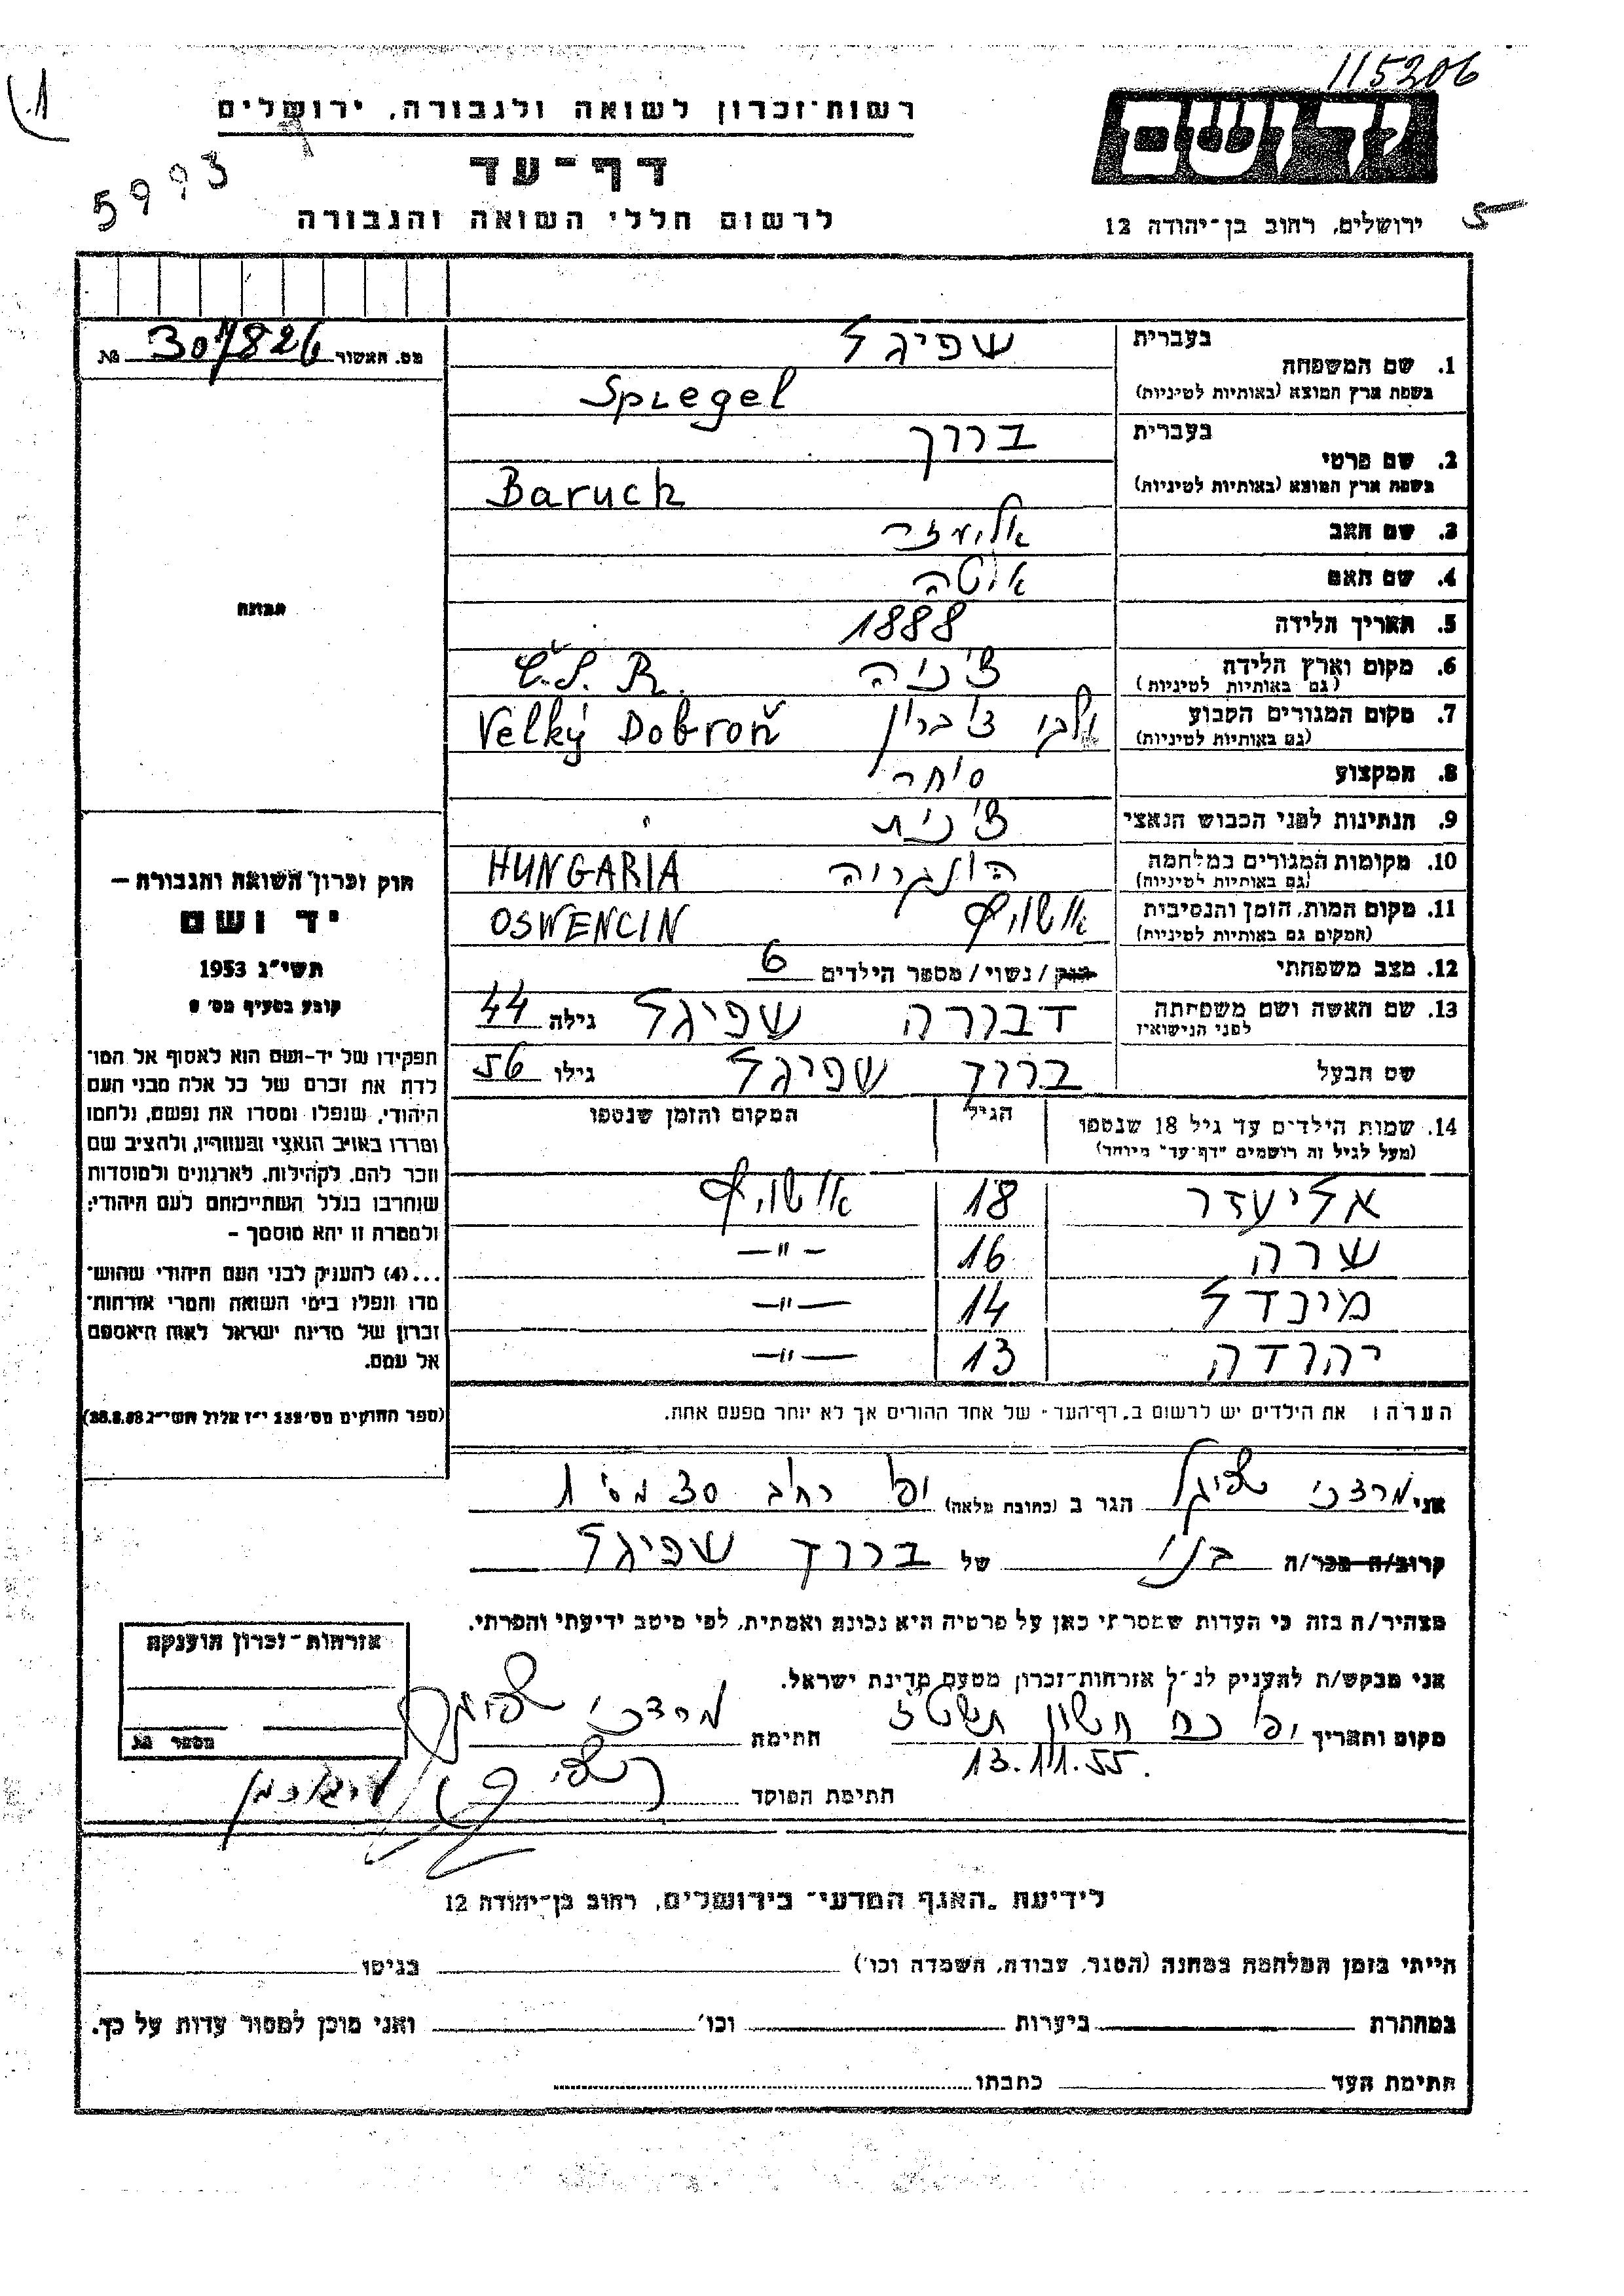 115206
רשות־זכרון לשואה ולגבורה, ירושלים
יד ושם
דף־עד
5993
לרשום חללי השואה והגבורה
ירושלים, רחוב בן־יהודה 12
מס. האשור 307826 №
1. שם המשפחה
בעברית שפיגל
בשפת ארץ המוצא (באותיות לטיניות) Spiegel
2. שם פרטי
בעברית ברוך
בשפת ארץ המוצא (באותיות לטיניות) Baruch
3. שם האב אליעזר
4. שם האם איטה
5. תאריך הלידה 1888
6. מקום וארץ הלידה צ'כיה Č.S.R.
(גם באותיות לטיניות)
7. מקום המגורים הקבוע Velký Dobroň
(גם באותיות לטיניות)
8. המקצוע סוחר
9. הנתינות לפני הכבוש הנאצי צ'כית
10. מקומות המגורים במלחמה הונגריה HUNGARIA
(גם באותיות לטיניות)
11. מקום המות, הזמן והנסיבות אושויץ OSWENCIN
(המקום גם באותיות לטיניות)
12. מצב משפחתי רווק / נשוי / מספר הילדים 6
13. שם האשה ושם משפחתה לפני הנישואין דבורה שפיגל גילה 44
שם הבעל ברוך שפיגל גילו 56
14. שמות הילדים עד גיל 18 שנספו הגיל המקום והזמן שנספו
(מעל לגיל זה רושמים "דף־עד" מיוחד)
אליעזר 18 אושויץ
שרה 16 — " —
מינדל 14 — " —
יהודה 13 — " —
הערה: את הילדים יש לרשום ב"דף־העד" של אחד ההורים אך לא יותר מפעם אחת.
התמונה
חוק זכרון השואה והגבורה —
יד ושם
תשי"ג 1953
קובע בסעיף מס' 2
תפקידו של יד־ושם הוא לאסוף אל המו־
לדת את זכרם של כל אלה מבני העם
היהודי, שנפלו ומסרו את נפשם, נלחמו
ומרדו באויב הנאצי ובעוזריו, ולהציב שם
וזכר להם, לקהילות, לארגונים ולמוסדות
שנחרבו בגלל השתייכותם לעם היהודי;
ולמטרה זו יהא מוסמך –
...(4) להעניק לבני העם היהודי שהוש־
מדו ונפלו בימי השואה והמרי אזרחות־
זכרון של מדינת ישראל לאות היאספם
אל עמם.
(ספר החוקים מס' 132 י"ז אלול תשי"ג 28.8.53)
אני מרדכי שפיגל הגר ב (כתובת מלאה) יפו רחוב 30 מס' 1
קרוב/ה מכר/ה בנו של ברוך שפיגל
מצהיר/ה בזה כי העדות שמסרתי כאן על פרטיה היא נכונה ואמתית, לפי מיטב ידיעתי והכרתי.
אני מבקש/ת להעניק לנ"ל אזרחות־זכרון מטעם מדינת ישראל.
מקום ותאריך יפו כח חשון תשט"ז 13.11.55. חתימת מרדכי שפיגל
חתימת הפוקד
אזרחות־זכרון הוענקה
מספר №
לידיעת "האגף המדעי" בירושלים, רחוב בן־יהודה 12
הייתי בזמן המלחמה במחנה (הסגר, עבודה, השמדה וכו') בגיטו
במחתרת ביערות וכו' ואני מוכן למסור עדות על כך.
חתימת העד כתבתו